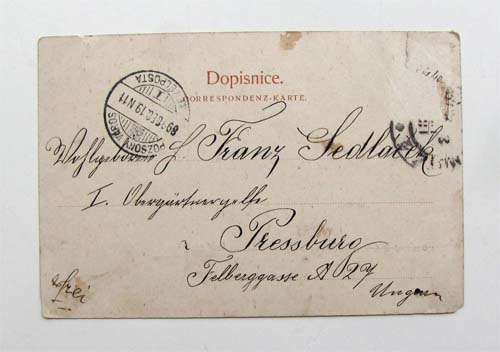 Dopisnice.
CORRESPONDENZ-KARTE.
POZSONY VÁROS
Wohlgeboren H. Franz Sedlacek
I. Obergärtnergelfe
Pressburg
Felberggasse A 027
Ungarn
frei